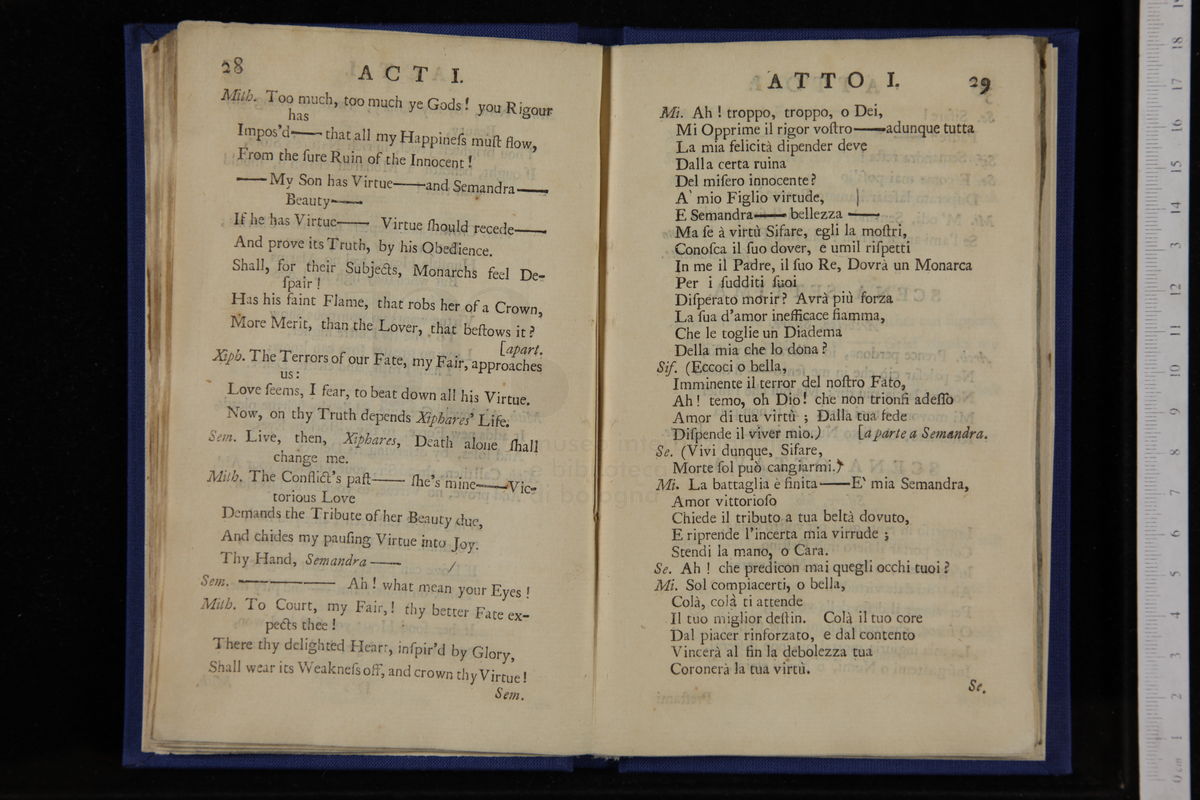 28
ACT I.
Mith. Too much, too much ye Gods! you Rigour
has
Impos'd—— that all my Happineſs muſt flow,
From the ſure Ruin of the Innocent!
—— My Son has Virtue——and Semandra——
Beauty——
If he has Virtue—— Virtue ſhould recede——
And prove its Truth, by his Obedience.
Shall, for their Subjects, Monarchs feel De-
ſpair!
Has his faint Flame, that robs her of a Crown,
More Merit, than the Lover, that beſtows it?
[apart.
Xiph. The Terrors of our Fate, my Fair, approaches
us:
Love ſeems, I fear, to beat down all his Virtue.
Now, on thy Truth depends Xiphares' Life.
Sem. Live, then, Xiphares, Death alone ſhall
change me.
Mith. The Conflict's paſt—— ſhe's mine——Vic-
torious Love
Demands the Tribute of her Beauty due,
And chides my pauſing Virtue into Joy.
Thy Hand, Semandra ——
Sem. —————— Ah! what mean your Eyes!
Mith. To Court, my Fair,! thy better Fate ex-
pects thee!
There thy delighted Heart, inſpir'd by Glory,
Shall wear its Weakneſs off, and crown thy Virtue!
Sem.
ATTO I.
29
Mi. Ah! troppo, troppo, o Dei,
Mi Opprime il rigor voſtro——adunque tutta
La mia felicità dipender deve
Dalla certa ruina
Del miſero innocente?
A' mio Figlio virtude,
E Semandra—— bellezza ——
Ma ſe à virtù Sifare, egli la moſtri,
Conoſca il ſuo dover, e umil riſpetti
In me il Padre, il ſuo Re, Dovrà un Monarca
Per i ſudditi ſuoi
Diſperato morir? Avrà più forza
La ſua d'amor inefficace fiamma,
Che le toglie un Diadema
Della mia che lo dona?
Sif. (Eccoci o bella,
Imminente il terror del noſtro Fato,
Ah! temo, oh Dio! che non trionfi adeſſo
Amor di tua virtù ; Dalla tua fede
Diſpende il viver mio.) [a parte a Semandra.
Se. (Vivi dunque, Sifare,
Morte ſol può cangiarmi.)
Mi. La battaglia è finita——E' mia Semandra,
Amor vittorioſo
Chiede il tributo a tua beltà dovuto,
E riprende l'incerta mia virrude ;
Stendi la mano, o Cara.
Se. Ah! che predicon mai quegli occhi tuoi?
Mi. Sol compiacerti, o bella,
Colà, colà ti attende
Il tuo miglior deſtin. Colà il tuo core
Dal piacer rinforzato, e dal contento
Vincerà al fin la debolezza tua
Coronerà la tua virtù.
Se.